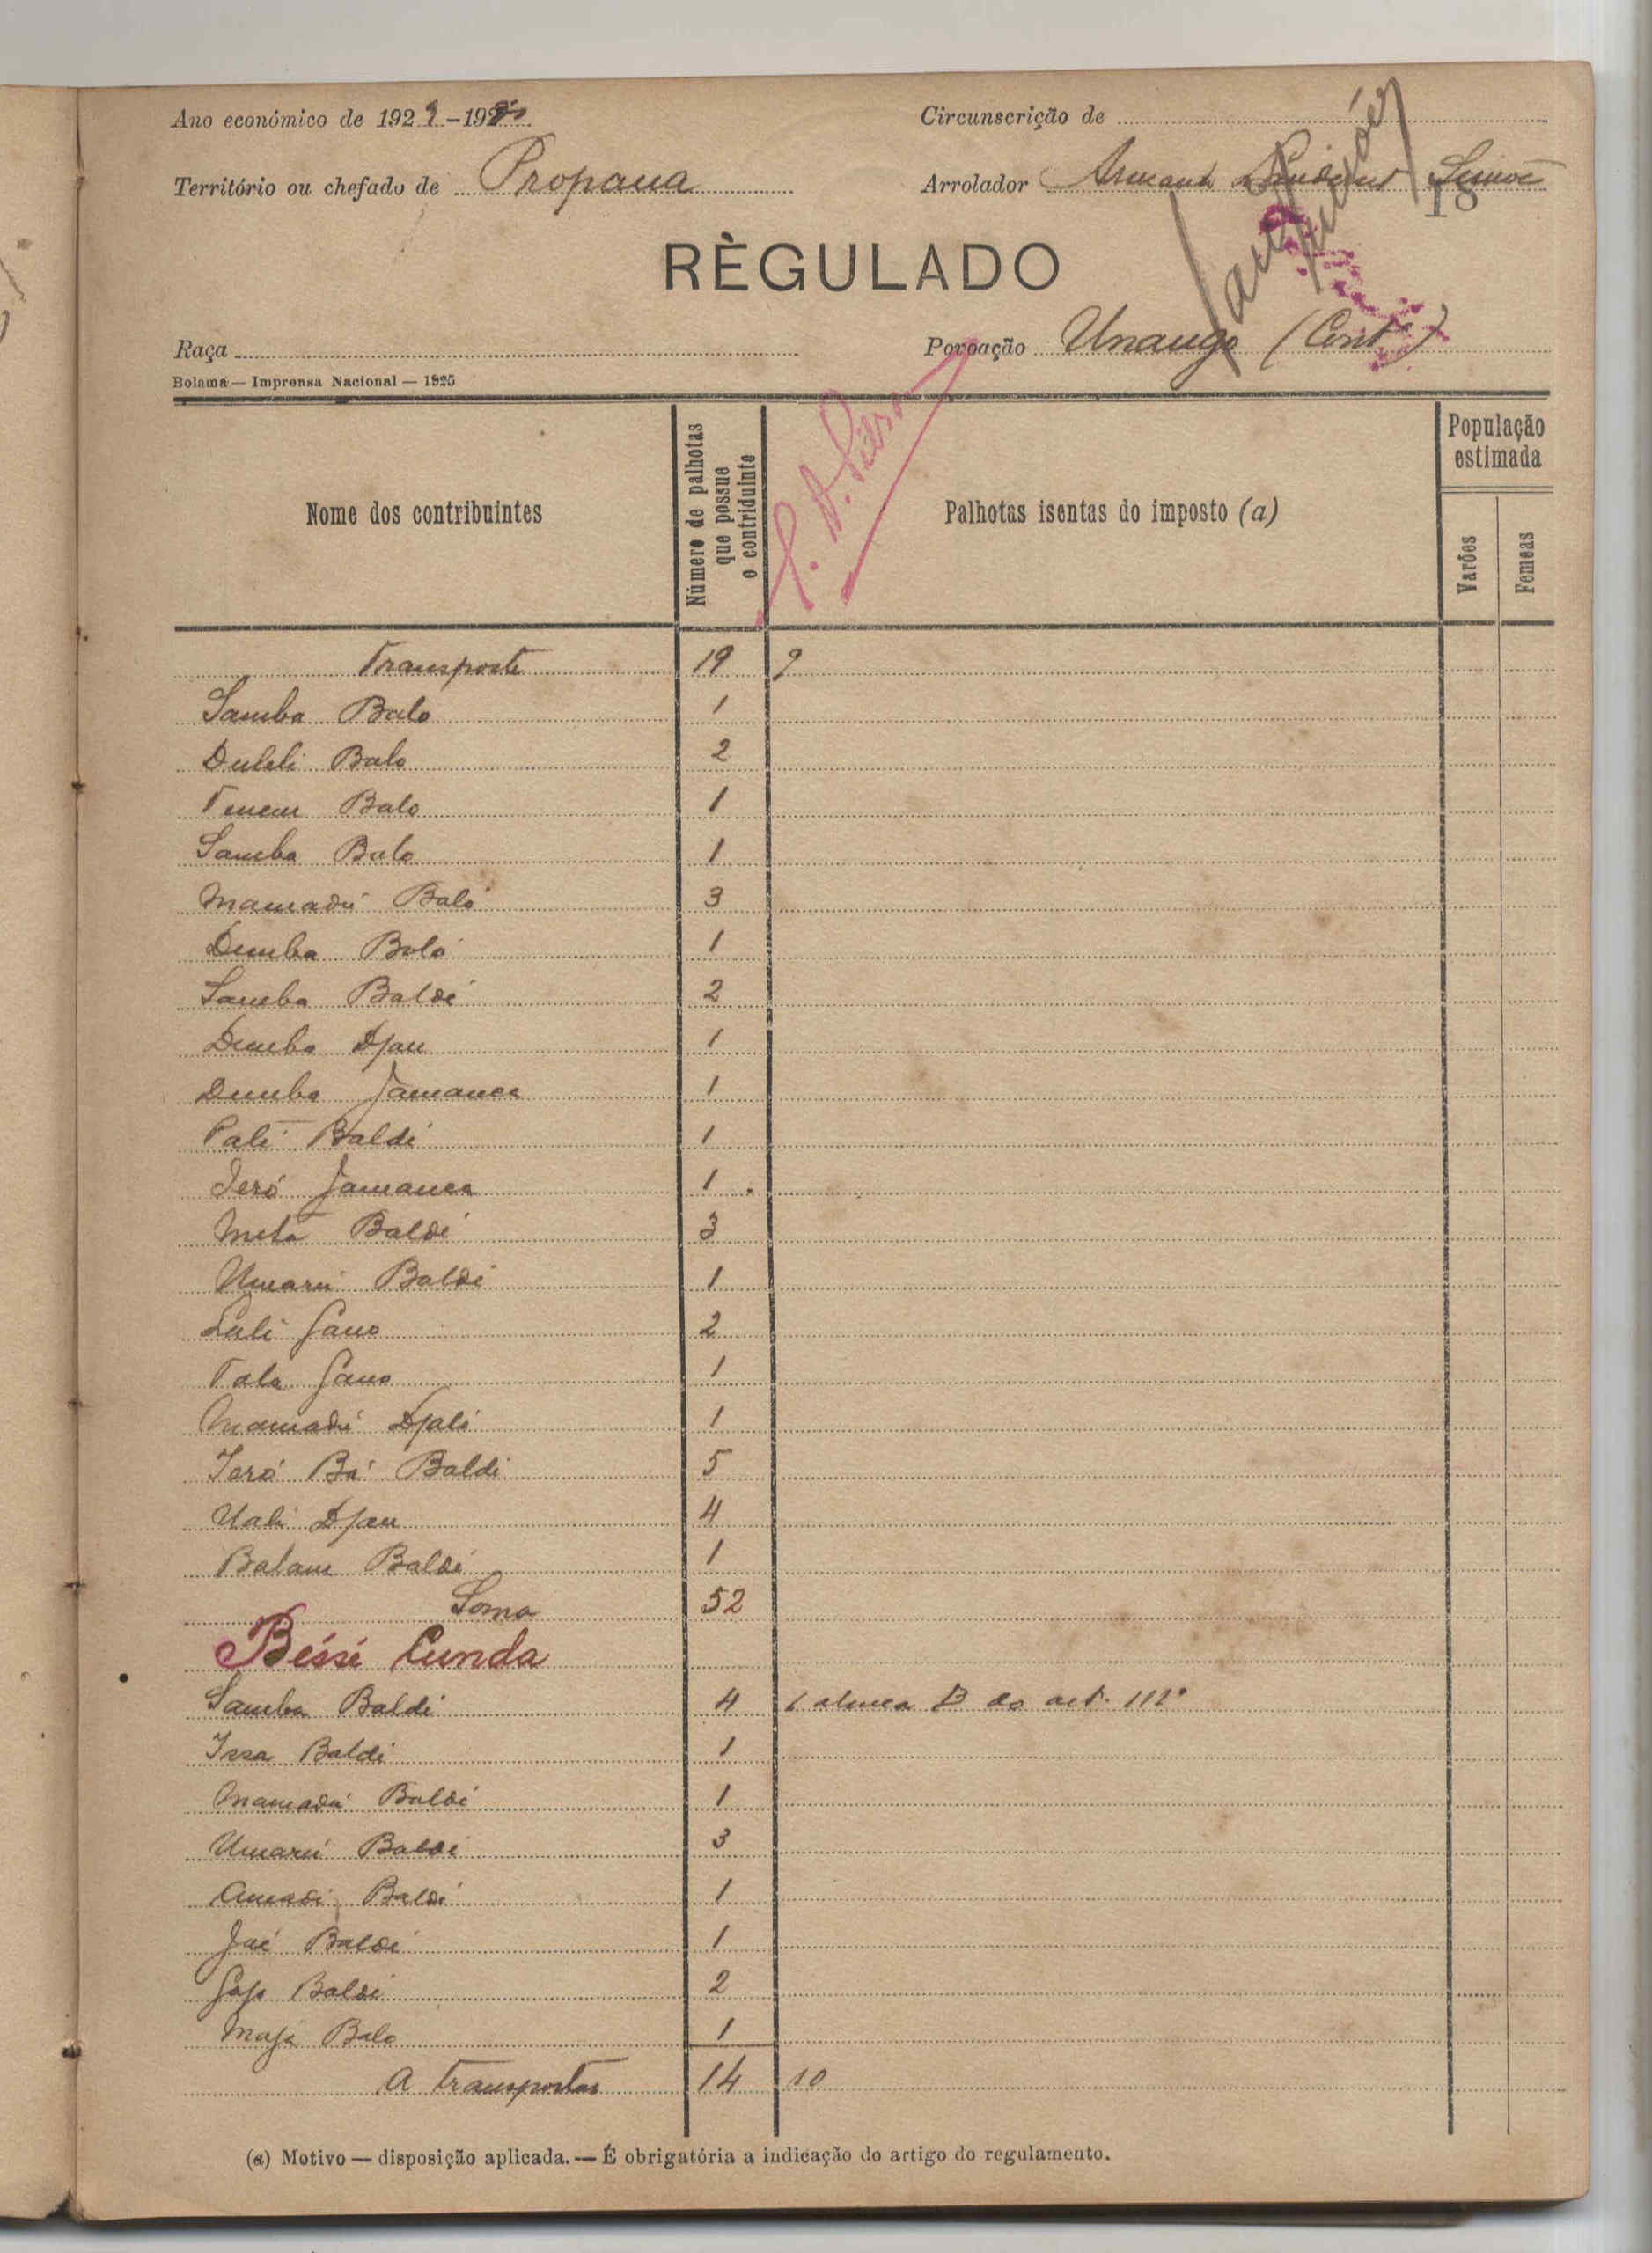 Ano económico de 1929-19
Circunscrição de
Território ou chefado de Propana
Arrolador Simões
18
RÈGULADO
Raça
Povoação Unango (Cont.)
Bolama — Imprensa Nacional — 1925
Nome dos contribuintes
Número de palhotas que possue o contriduinte
Palhotas isentas do imposto (a)
População estimada
Varões
Femeas
Transporte 19 9
Samba Balo 1
Duleli Balo 2
Balo 1
Samba Balo 1
Mamadú Baló 3
Demba Boló 1
Samba Baldé 2
Demba Djau 1
Demba Jamanca 1
Paté Baldé 1
Jeró Jamanca 1
Meta Baldé 3
Umarú Baldé 1
Lali Gano 2
Tala Gano 1
Mamadú Djaló 1
Jeró Bá Baldi 5
Uali Djau 4
Balam Baldé 1
Soma 52
Béssé Cunda
Samba Baldé 4 1 alinea B do art. 111º
Issa Baldé 1
Mamadú Baldé 1
Umarú Baldé 3
Amadi Baldé 1
Jaé Baldé 1
Gajo Baldé 2
Maja Balo 1
A transportar 14 10
(a) Motivo — disposição aplicada. — É obrigatória a indicação do artigo do regulamento.